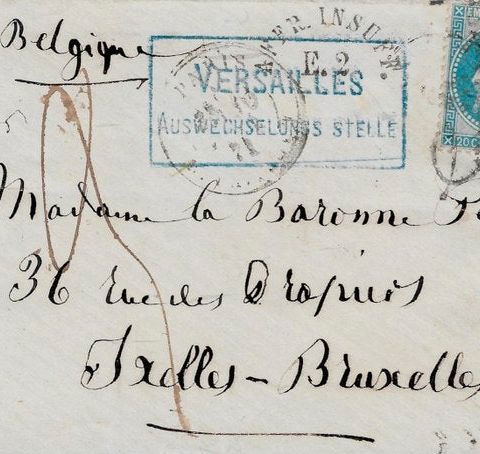 Belgique
AFFR. INSUFF.
E. 2
PARIS
VERSAILLES
AUSWECHSELUNGS STELLE
71
20 C
Madame la Baronne
36 rue des Drapiers
Ixelles – Bruxelles